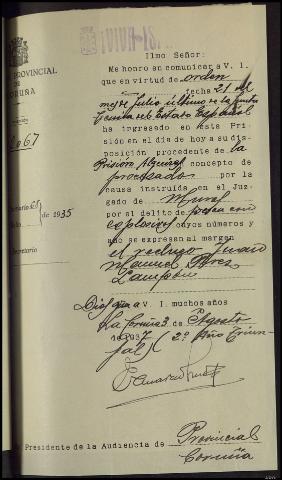 PROVINCIAL
DE
CORUÑA
2667
de 1935
Secretario
Ilmo Señor:
Me honro en comunicar a V. I.
que en virtud de orden
fecha 21 del
mes de Julio último de la Junta
Técnica del Estado Español
ha ingresado en esta Pri
sión en el día de hoy a su dis-
posición procedente de la
Prisión concepto de
procesado por la
causa instruida en el Juz
gado de Muros
por el delito de pesca con
explosivos cuyos números y
año se expresan al margen
el Juan
Manuel
Dios gue a V. I. muchos años
La Coruña 3 de Agosto
de 1937 (2º Año Triun-
fal)
Presidente de la Audiencia de Provincial
Coruña